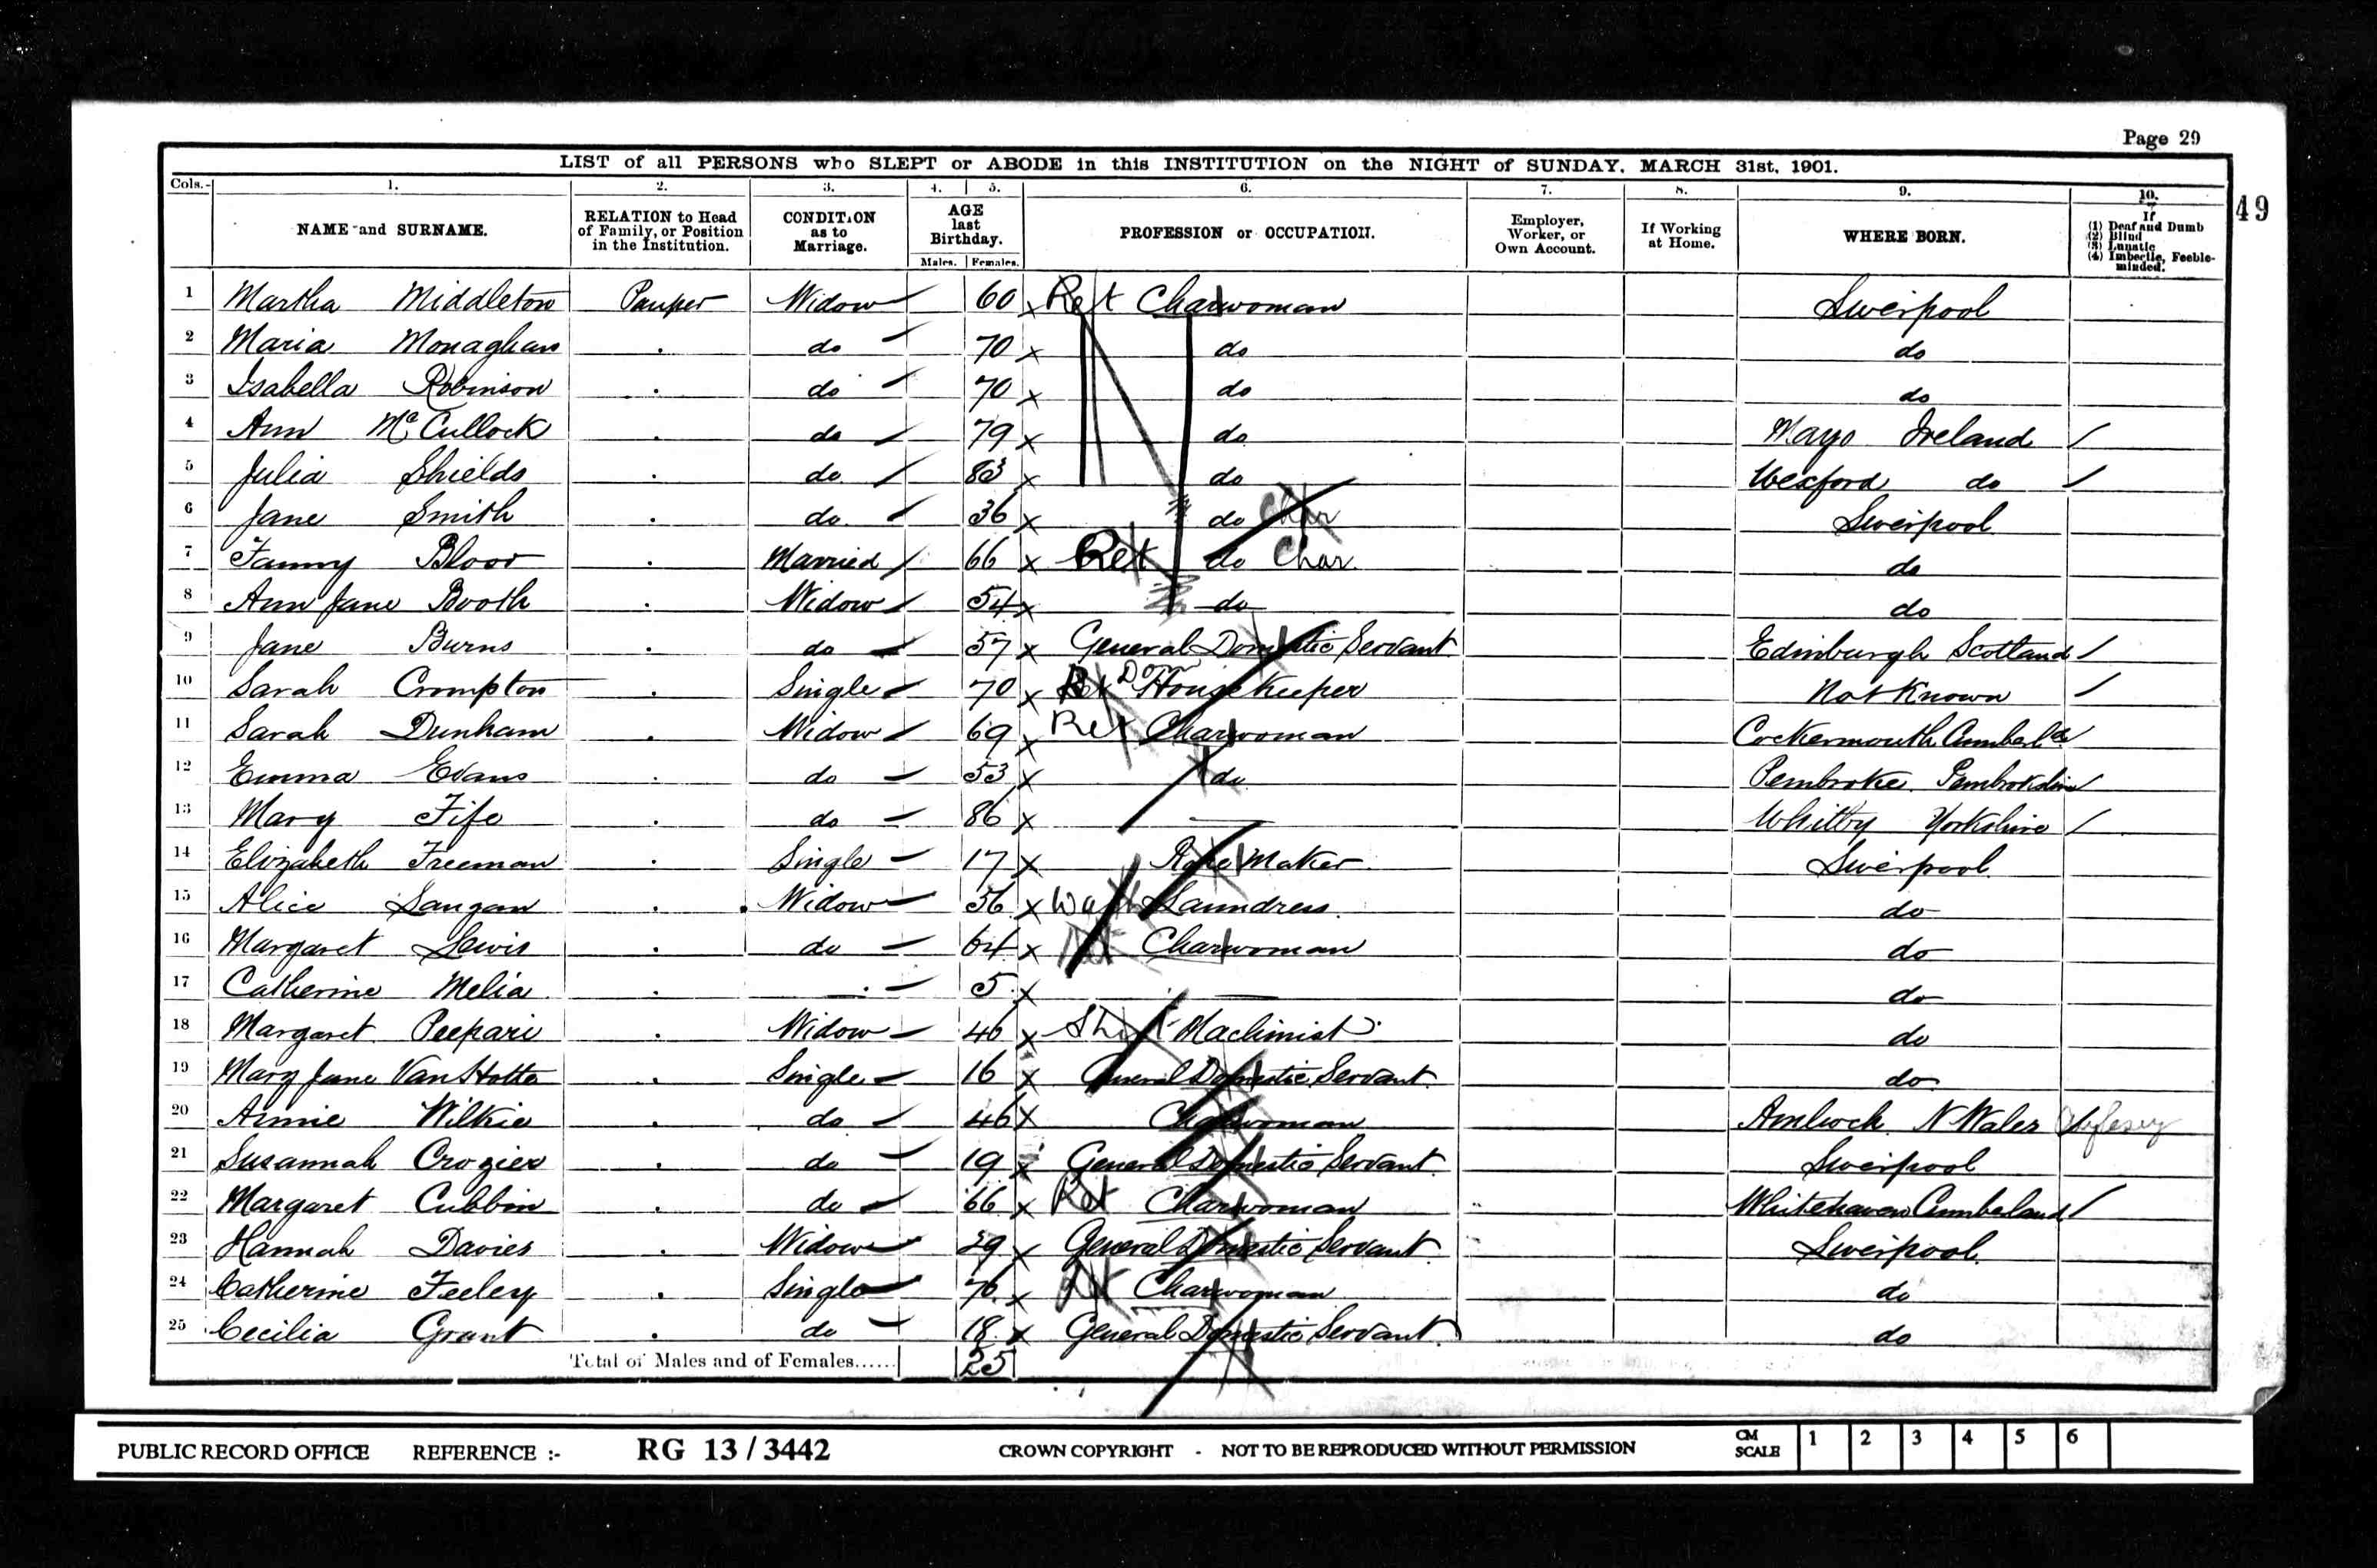 Page 29
LIST of all PERSONS who SLEPT or ABODE in this INSTITUTION on the NIGHT of SUNDAY, MARCH 31st, 1901.
49
Cols.- 1. 2. 3. 4. 5. 6. 7. 8. 9. 10.
NAME and SURNAME. RELATION to Head of Family, or Position in the Institution. CONDITION as to Marriage. AGE last Birthday. Males. Females. PROFESSION or OCCUPATION. Employer, Worker, or Own Account. If Working at Home. WHERE BORN. If (1) Deaf and Dumb (2) Blind (3) Lunatic (4) Imbecile, Feeble-minded.
1 Martha Middleton Pauper Widow 60 x Ret Charwoman Liverpool
2 Maria Monaghan . do 70 x do do
3 Isabella Robinson . do 70 x do do
4 Ann McCullock . do 79 x do Mayo Ireland
5 Julia Shields . do 83 x do Wexford do
6 Jane Smith . do 36 x do Char Liverpool
7 Fanny Bloor . Married 66 x Ret do Char do
8 Ann Jane Booth . Widow 54 x do do
9 Jane Burns . do 57 x General Domestic Servant Edinburgh Scotland
10 Sarah Crompton . Single 70 x Ret Dom Housekeeper Not Known
11 Sarah Dunham . Widow 69 x Ret Charwoman Cockermouth Cumberld
12 Emma Evans . do 53 x do Pembroke Pembrokshire
13 Mary Fife . do 86 x — Whitby Yorkshire
14 Elizabeth Freeman . Single 17 x Rope Maker Liverpool
15 Alice Langan . Widow 36 x Wash Laundress do
16 Margaret Lewis . do 64 x Charwoman do
17 Catherine Melia . . 5 x — do
18 Margaret Peepari . Widow 46 x Shirt Machinist do
19 Mary Jane VanHolte . Single 16 x General Domestic Servant do
20 Annie Wilkie . do 46 x Charwoman Amlwch N Wales Anglesey
21 Susannah Crozier . do 19 x General Domestic Servant Liverpool
22 Margaret Cubbin . do 66 x Ret Charwoman Whitehaven Cumberland
23 Hannah Davies . Widow 29 x General Domestic Servant Liverpool
24 Catherine Feeley . Single 70 x Ret Charwoman do
25 Cecilia Grant . do 18 x General Domestic Servant do
Total of Males and of Females...... 25
PUBLIC RECORD OFFICE REFERENCE :- RG 13 / 3442 CROWN COPYRIGHT - NOT TO BE REPRODUCED WITHOUT PERMISSION CM SCALE 1 2 3 4 5 6